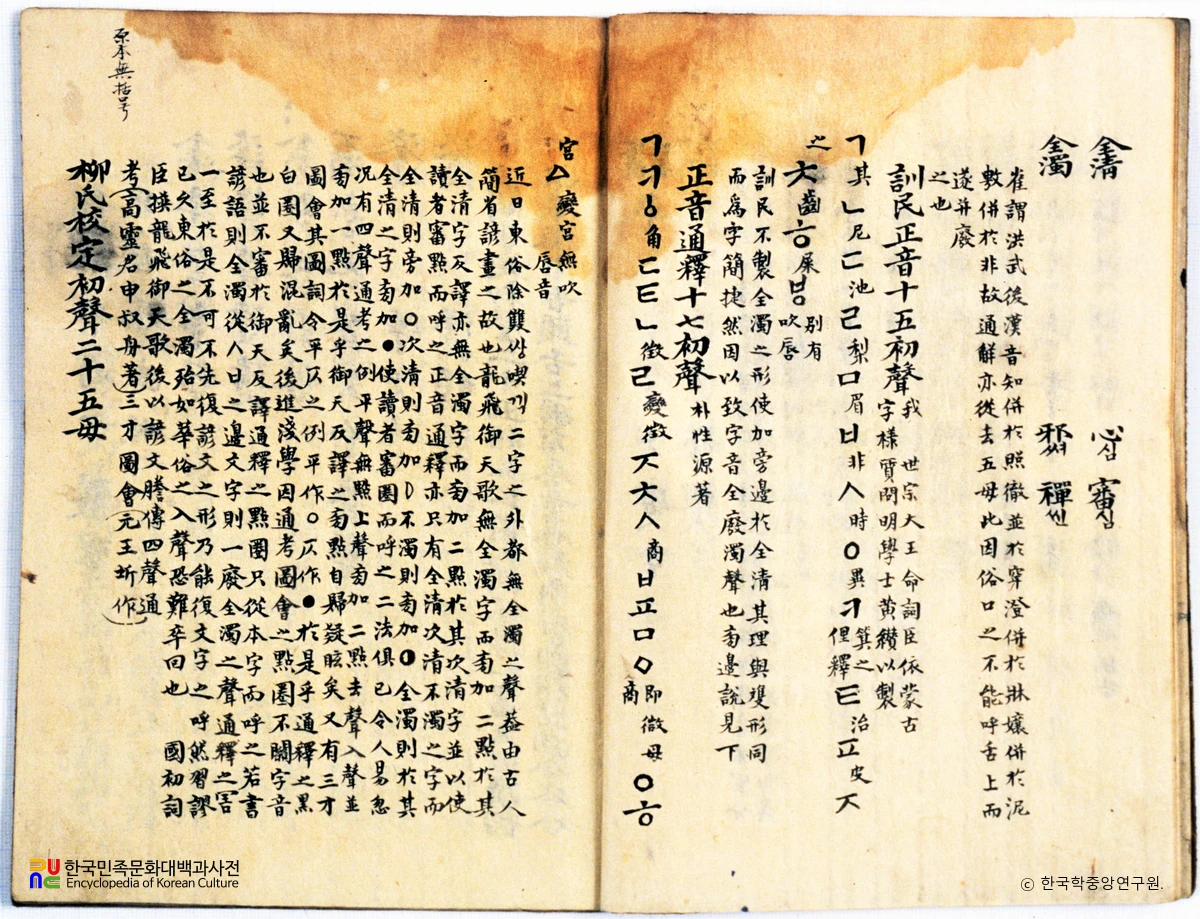 全清 心심 審심
全濁 邪씨 禪씬
崔謂洪武後漢音知併於照徹並於穿澄併於牀孃併於泥
敷併於非故通解亦從去五母此因俗口之不能呼舌上而
遂并廢
之也
訓民正音十五初聲 我 世宗大王命詞臣依蒙古
字樣質問明學士黃纘以製
ㄱ其ㄴ尼ㄷ池ㄹ梨ㅁ眉ㅂ非ㅅ時ㅇ異ㅋ箕之俚釋ㅌ治ㅍ皮ㅈ
之ㅊ齒ㆆ屎ㅸ 别有吹唇
訓民不製全濁之形使加旁邊於全清其理與雙形同
而爲字簡捷然因以致字音全廢濁聲也旁邊說見下
正音通釋十七初聲 朴性源著
ㄱㅋㆁ角ㄷㅌㄴ徵ㄹ變徵ㅈㅊㅅ商ㅂㅍㅁㅇ即微母ㅇㆆ
商
宮ㅿ變宮 無吹唇音
近日東俗除雙쌍喫끽二字之外都無全濁之聲葢由古人
簡省諺畫之故也龍飛御天歌無全濁字而旁加二點於其
全清字反譯亦無全濁字而旁加二點於其次清字並以使
讀者審點而呼之正音通釋亦只有全清次清不濁之字而
全清則旁加○次清則旁加☽不濁則旁加◐全濁則於其
全清之字旁加●使讀者審圈而呼之二法俱已令人易忽
况有四聲通考之例平聲無點上聲旁加二點去聲入聲並
旁加一點於是乎御天反譯之旁點自歸疑眩矣又有三才
圖會其圖詞令平仄之例平作○仄作●於是乎通釋之黑
白圈又歸混亂矣後進淺學因通考圖會之點圈不關字音
也並不審於御天反譯通釋之點圈只從本字而呼之若書
諺語則全濁從ㅅㅂ之邊文字則一廢全濁之聲通釋之害
一至於是不可不先復諺文之形乃能復文字之呼然習謬
已久東俗之全濁殆如華俗之入聲恐難卒回也 國初詞
臣撰龍飛御天歌後以諺文謄傳四聲通
考(高靈君申叔舟著)三才圖會(元王圻作)
柳氏校定初聲二十五母
原本無括号
한국민족문화대백과사전
Encyclopedia of Korean Culture
ⓒ 한국학중앙연구원.